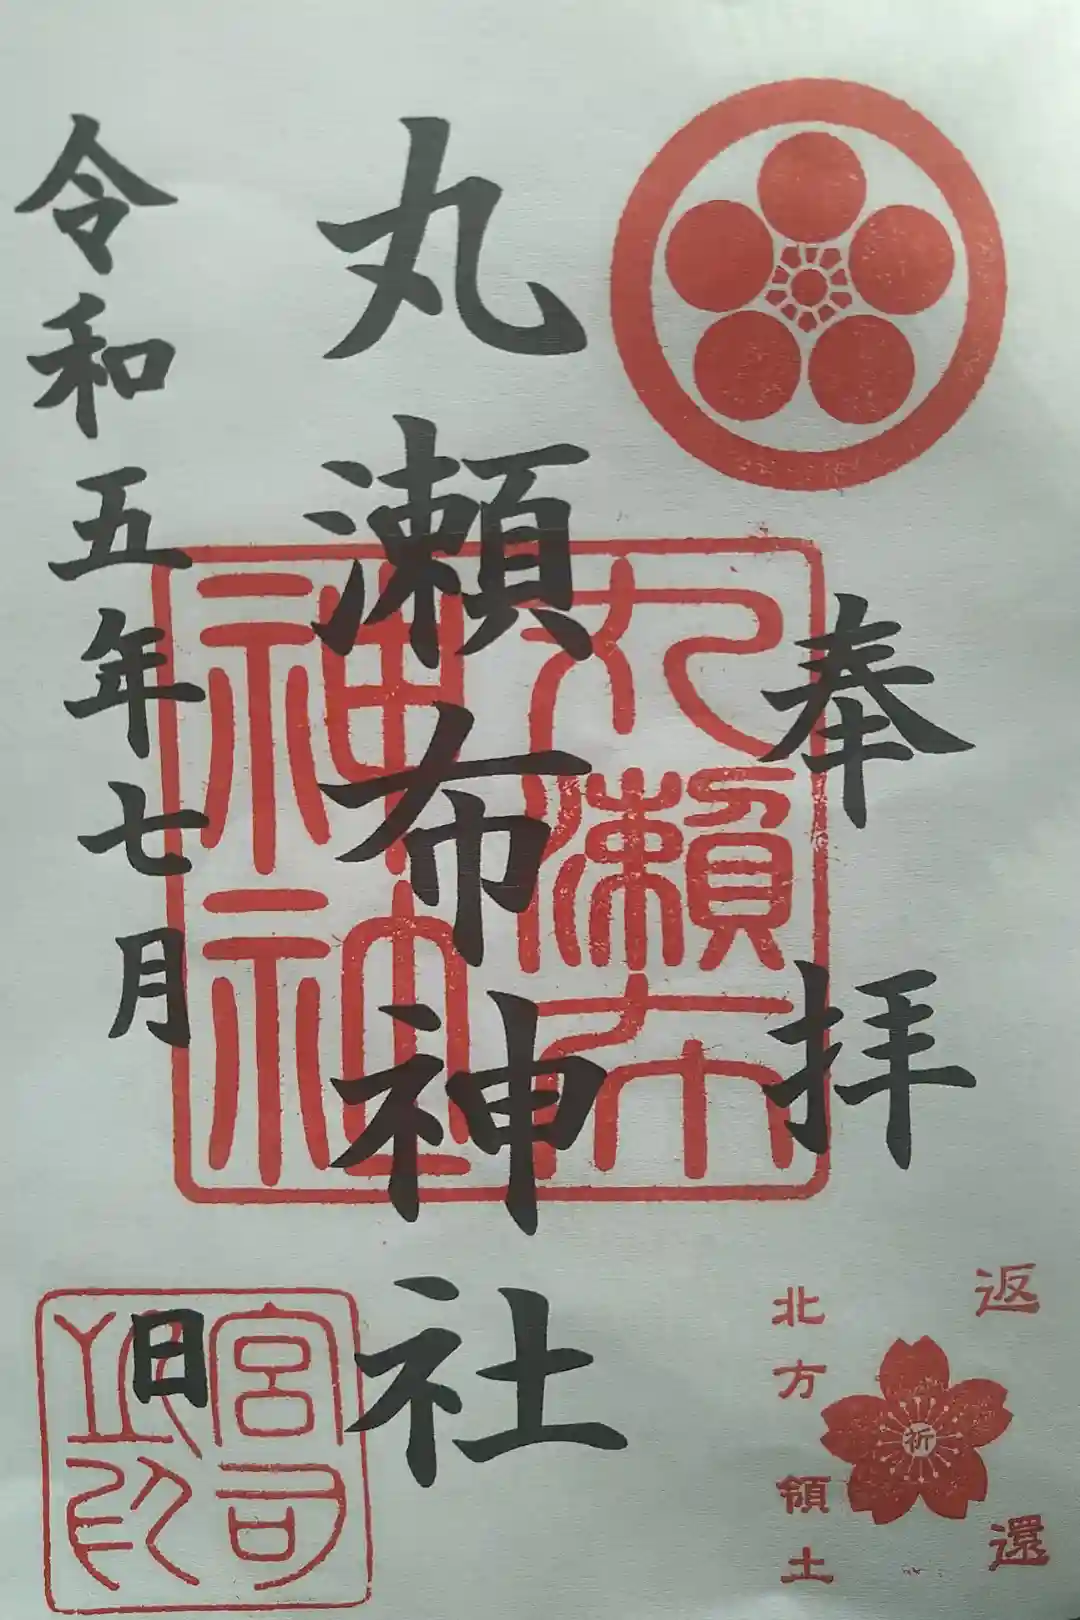 奉拝
丸瀬布神社
令和五年七月
日
丸瀬布
神社
宮司
之印
返還
祈
北方領土